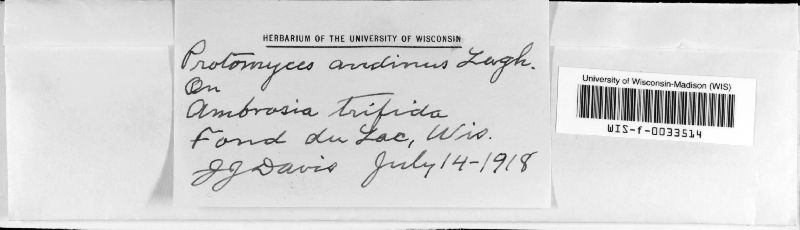 HERBARIUM OF THE UNIVERSITY OF WISCONSIN
Protomyces andinus Lagh.
On
Ambrosia trifida
Fond du Lac, Wis.
JJ Davis July 14-1918
University of Wisconsin-Madison (WIS)
WIS-f-0033514